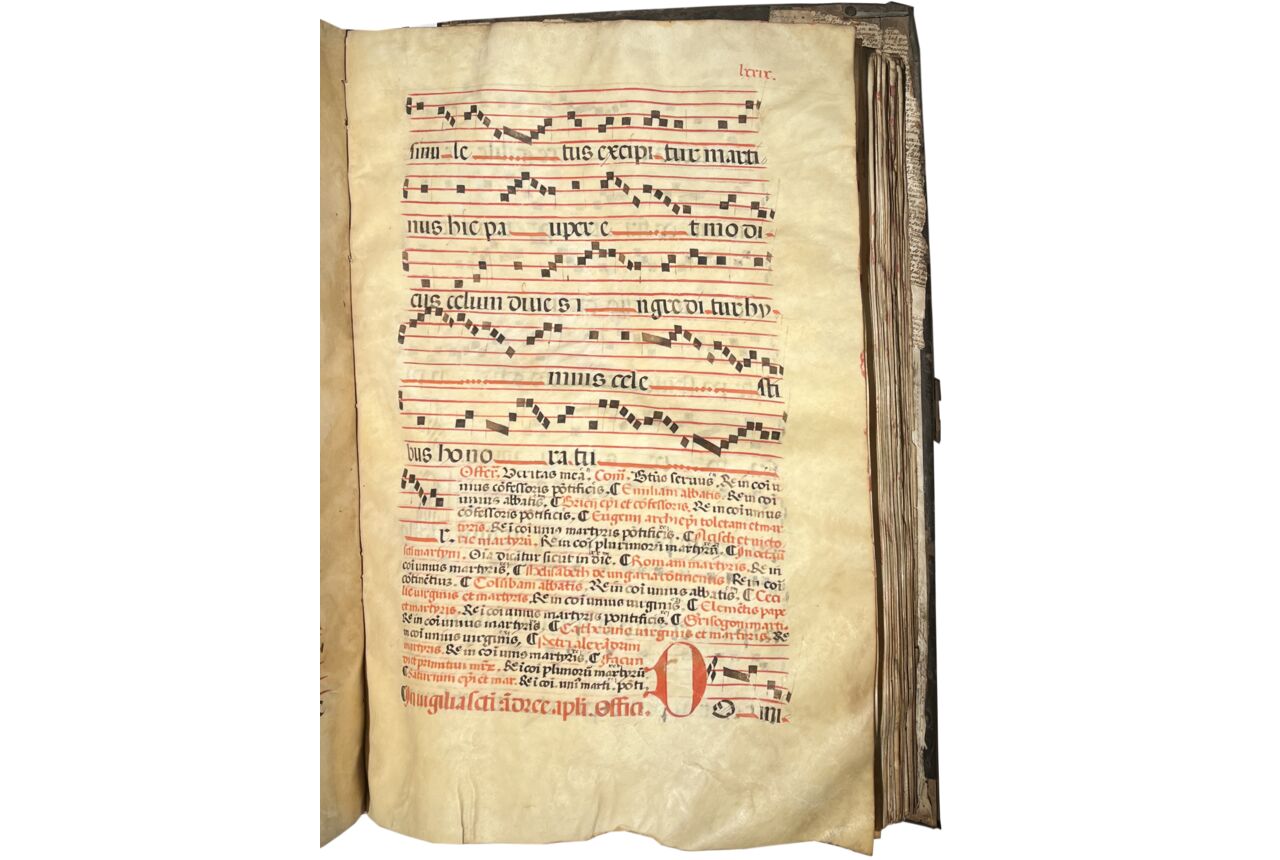 lxxix.
sinu le tus excipi tur marti
nus hic pa uper e t modi
cus celum dives i ngredi tur hy
mnis cele sti
bus hono ra tu
Offer. Veritas mea. Com. Btus servus. Re in coi u
nius cofessoris potificis. ¶ Emiliani abbatis. Re in coi
unius abbatis. ¶ Bricii epi et cofessoris. Re in coi unius
cofessoris potificis. ¶ Eugenii archiepi toletani et mar
r. tyris. Re i coi unius martyris potificis. ¶ Aciscli et victo
rie martyru. Re in coi plurimoru martyru. ¶ In octava
scti martyni. Oia dicatur sicut in die. ¶ Romani martyris. Re in
coi unius martyris. ¶ Helisabeth de ungaria cotinentis Re in coi
cotinetiu. ¶ Colubani abbatis. Re in coi unius abbatis. ¶ Ceci
lie virginis et martyris. Re in coi unius virginis. ¶ Clemetis pape
et martyris. Re i coi unius martyris pontificis. ¶ Grisogoni marti.
Re in coi unius martyris. ¶ Catherine virginis et martyris. Re
in coi unius virginis. ¶ Petri alexandrini
martyris. Re in coi unius martyris. ¶ Facun
di et primitivi mr. Re i coi plurimoru martyru
¶ Saturnini epi et mar. Re i coi. uni marti. poti.
In vigilia scti adree apli. Offici. D O mi